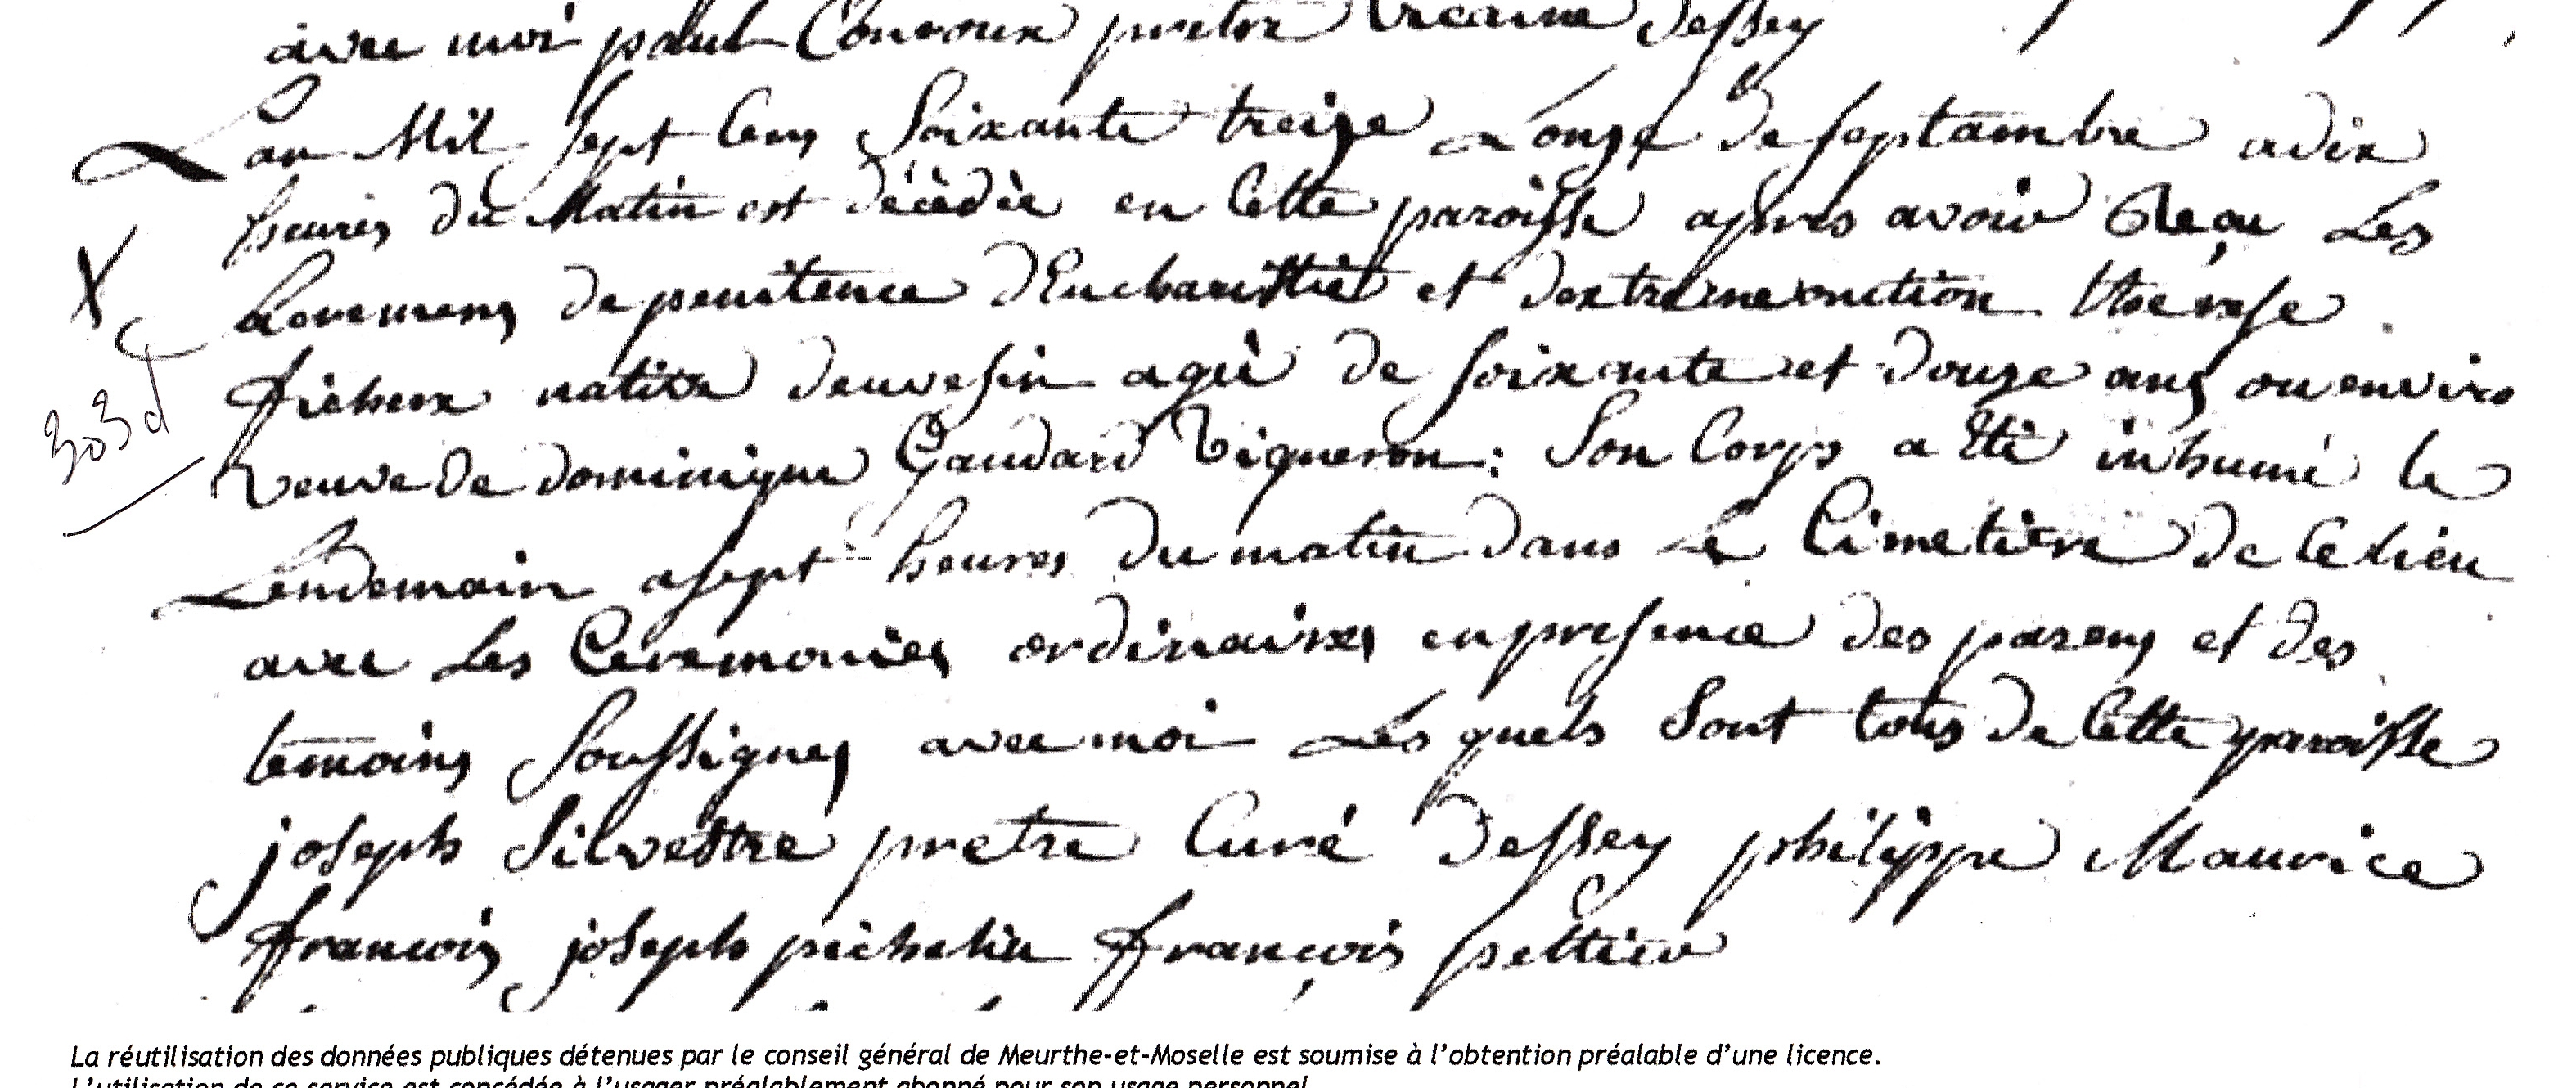 avec moi paul Convoux pretre vicaire dessey
Lan Mil sept Cens Soixante treize Le onze de septambre a dix
heures du Matin est décédée en Cette paroisse apres avoir Reçu Les
Sacremens de penitence d'Eucharistie et dextreme onction therese
ficheux native deuvesin agée de soixante et douze ans ou enviro
veuve de dominique Gaudard Vigneron : Son Corps a Eté inhumé le
Lendemain a sept heures du matin dans Le Cimetiere de Ce Lieu
avec Les Ceremonies ordinaires en presence des parens et des
temoins Soussignes avec moi Les quels Sont tous de Cette paroisse
joseph Silvestre pretre Curé dessey philippe Maurice
francois joseph pichelin francois peltier
X
303d
La réutilisation des données publiques détenues par le conseil général de Meurthe-et-Moselle est soumise à l'obtention préalable d'une licence.
L'utilisation de ce service est concédée à l'usager préalablement abonné pour son usage personnel